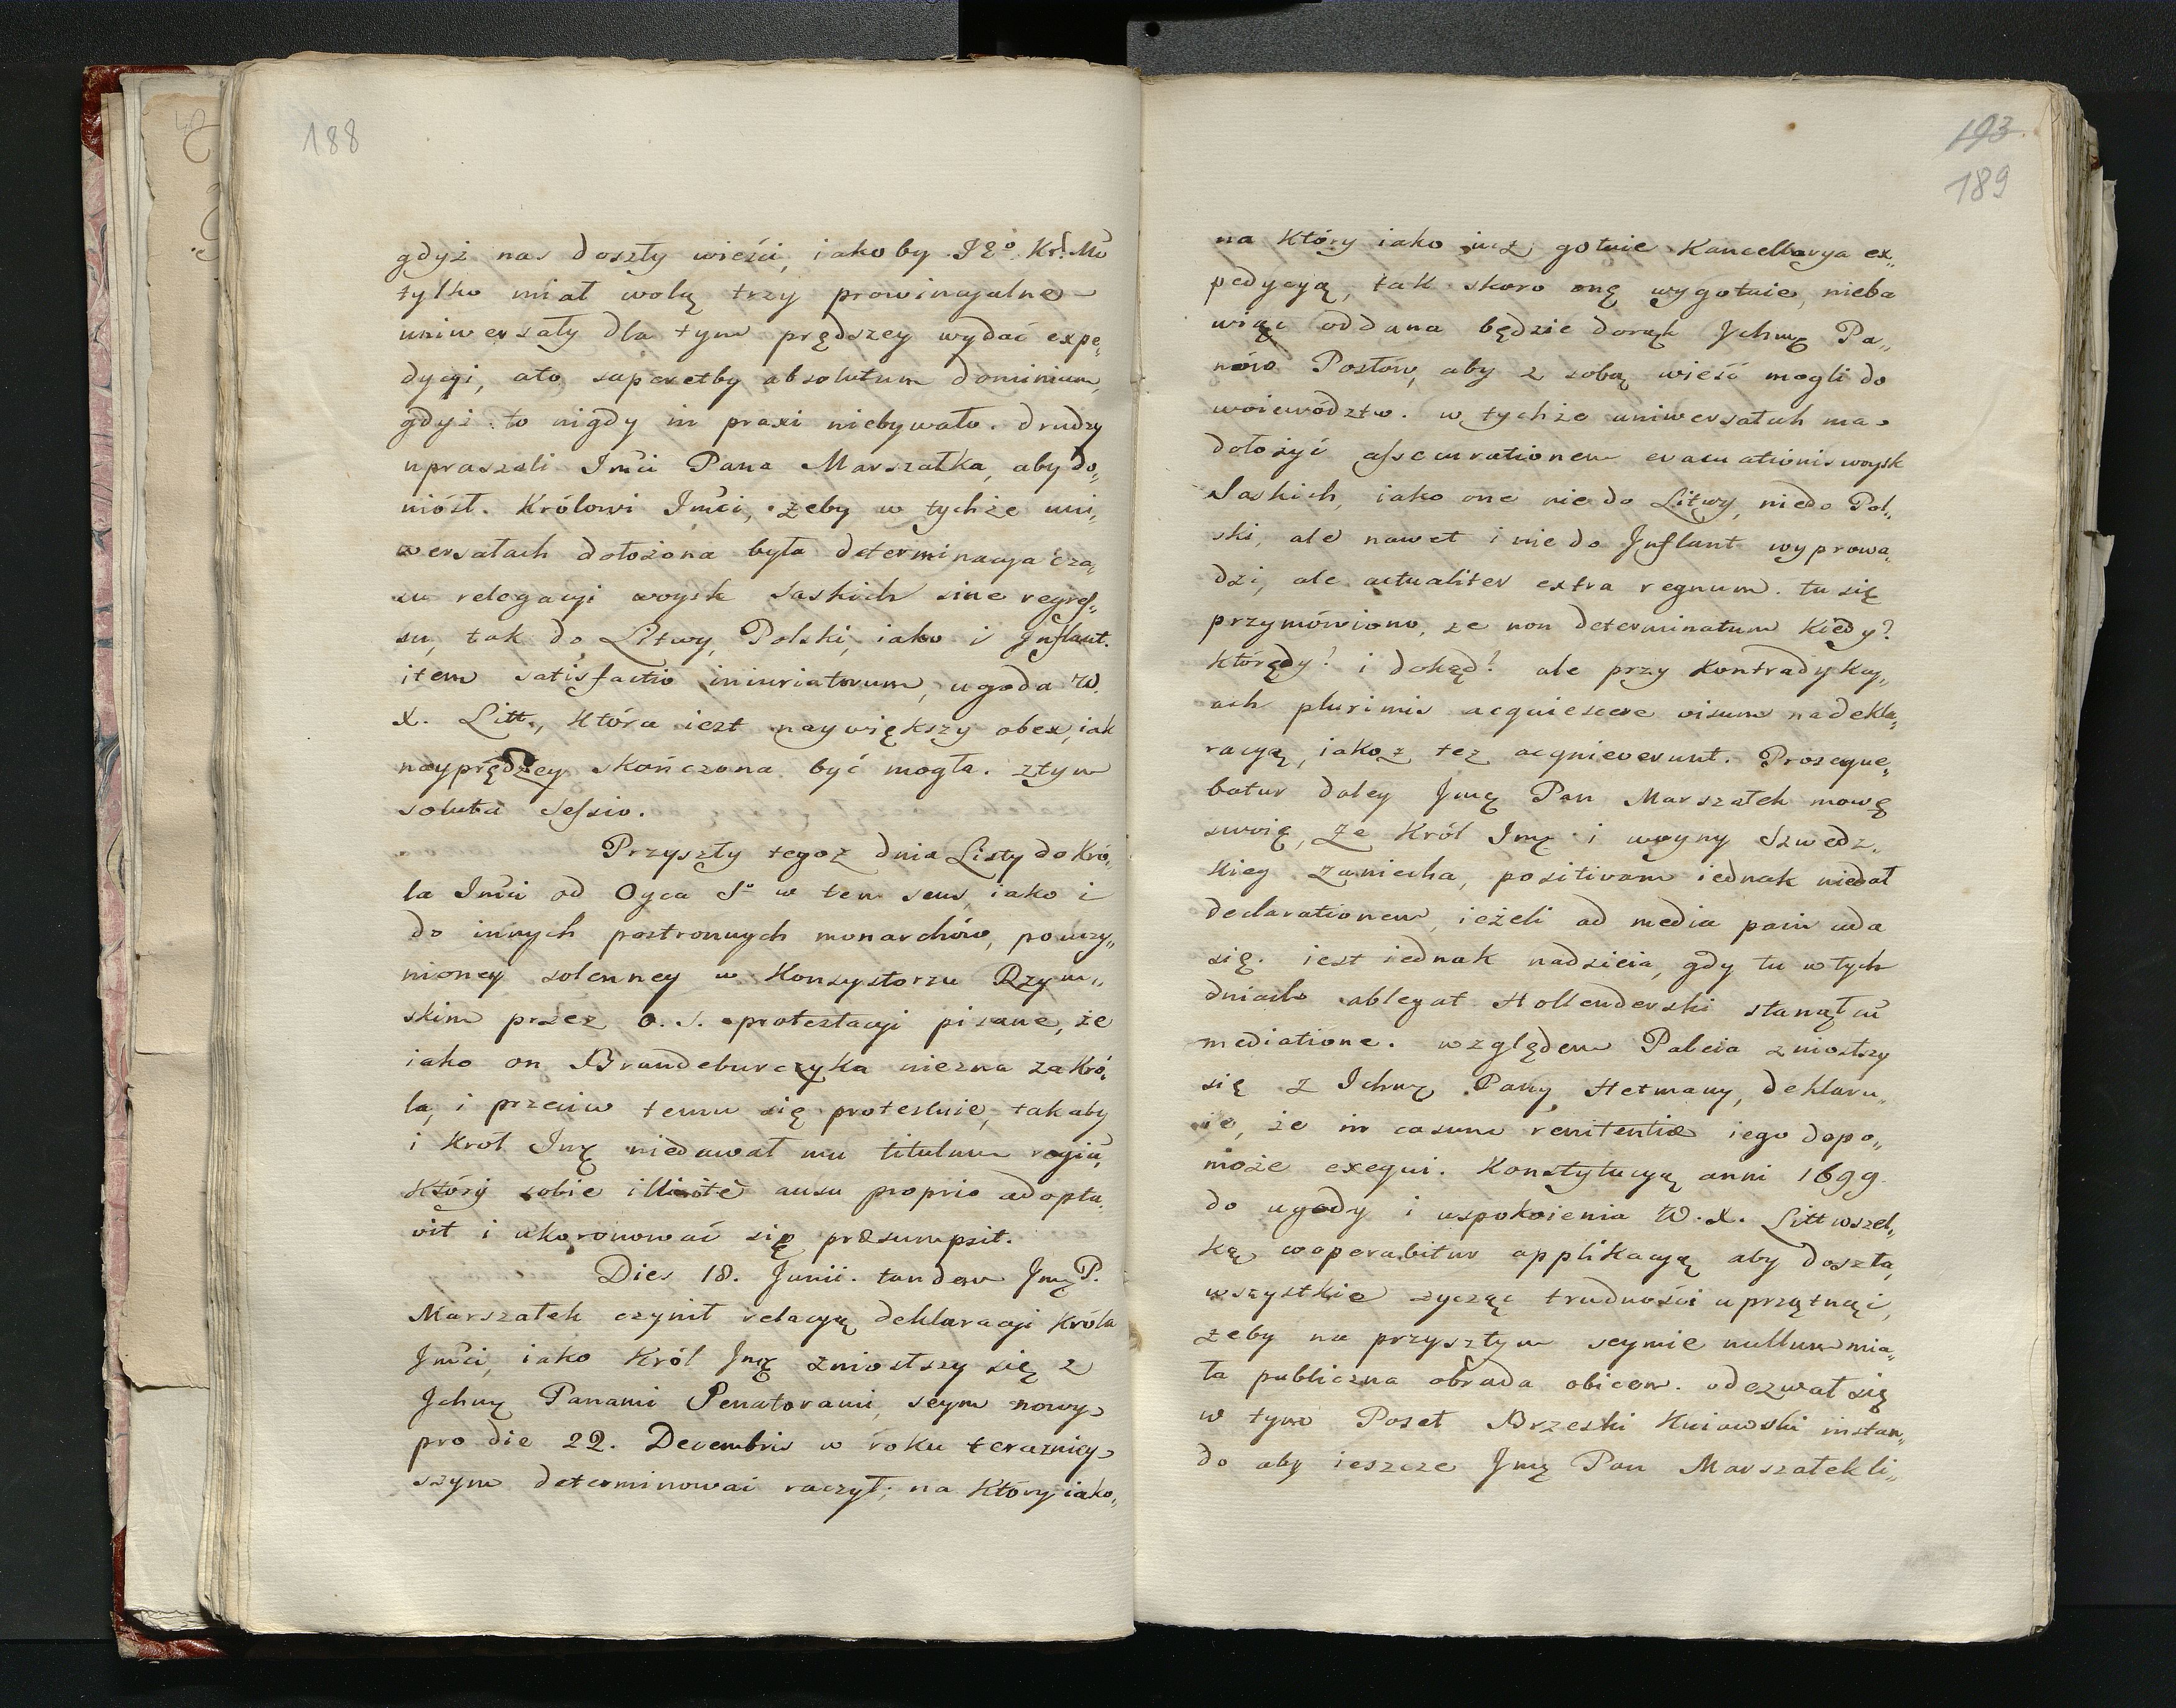 188
gdyż nas doszły wieści, iakoby JEº. Kr. Mć
tylko miał wolą trzy prowincyalne
uniwersały dla tym prędszey wydać expe„
dycyi, ato saperetby absolutum dominium,
gdyż to nigdy in praxi niebywało. drudzy
upraszali Jmci Pana Marszałka, aby do„
niósł Królowi Jmci, żeby w tychże uni„
wersałach dołożona była determinacya cza„
su relegacyi woysk saskich sine regres„
su, tak do Litwy, Polski, iako i Jnflant.
item satisfactio iniuriatorum, ugoda W.
X. Litt., która iest naywiększy obex, iak
nayprędzey skończona być mogła. ztym
soluta sessio.
Przyszły tegoż dnia Listy do Kró„
la Jmci od Oyca Sº w ten sens, iako i
do innych postronnych monarchów, po uczy„
nioney solenney w Konsystorzu Rzym„
skim przez O. S. protestacyi pisane, że
iako on Brandeburczyka niezna za Kró„
la, i przeciw temu się protestuie, tak aby
i Król Jmę niedawał mu titulum regiū,
który sobie illicitè ausu proprio adopta„
vit i ukoronować się præsumpsit.
Dies 18. Junii. tandem Jmę P.
Marszałek czynił relacyą deklaracyi Króla
Jmci, iako Król Jmę zniosłszy się z
Jchmę Panami Senatorami, seym nowy
pro die 22. Decembris w roku teraźniey„
szym determinować raczył; na który iako„
193.
189
na który iako iuż gotuie Kancellarya ex„
pedycyą, tak skoro onę wygotuie, nieba
wiąc oddana będzie do rąk Jchmę Pa„
nów Posłów, aby z sobą wieść mogli do
woiewództw. w tychże uniwersałach ma
dołożyć assecurationem evacuationis woysk
Saskich, iako one nie do Litwy, nie do Pol„
ski, ale nawet i nie do Jnflant wyprowa„
dzi, ale actualiter extra regnum. tu się
przymówiono, że non determinatum kiedy?
którędy? i dokąd? ale przy kontradykcy„
ach plurimis acquiescere visum na dekla„
racyą, iakoż też acquieverunt. Proseque„
batur daley Jmę Pan Marszałek mowę
swoię, że Król Jmę i woyny Szwedz„
kiey zaniecha, positivam iednak niedał
declarationem, ieżeli ad media pacis uda
się. iest iednak nadzieia, gdy tu w tych
dniach ablegat Hollenderski stanął cū
mediatione. względem Paleia zniosłszy
się z Jchmę Pany Hetmany, deklaru„
ie, że in casum renitentiæ iego dopo„
może exequi. Konstytucyą anni 1699
do ugody i uspokoienia W. X. Litt wszel„
ką cooperabitur applikacyą aby doszła,
wszystkie życząc trudności uprzątnąć,
żeby na przyszłym seymie nullum mia„
ła publiczna obrada obicem. odezwał się
w tym Poseł Brzeski Kuiawski instan„
do aby ieszcze Jmę Pan Marszałek li„